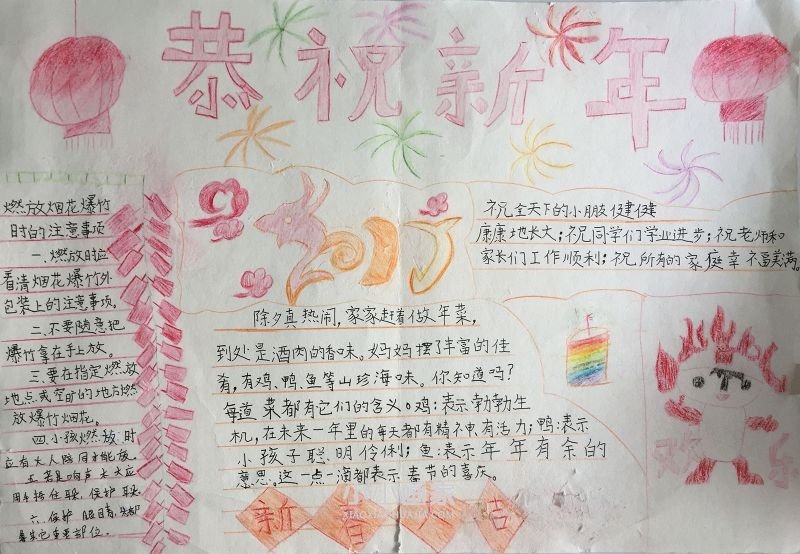 恭祝新年
燃放烟花爆竹
时的注意事项
一.燃放时应
看清烟花爆竹外
包装上的注意事项。
二.不要随意把
爆竹拿在手上放。
三.要在指定燃放
地点或空旷的地方燃
放爆竹烟花。
四.小孩燃放时
应有大人陪同才能放。
五.若是响声太大应
用手捂住耳朵,保护耳朵
六.保护眼睛,头部
等其它重要部位。
2017
祝全天下的小朋友健健
康康地长大;祝同学们学业进步;祝老师和
家长们工作顺利;祝所有的家庭幸福美满。
除夕真热闹,家家赶着做年菜,
到处是酒肉的香味。妈妈摆了丰富的佳
肴,有鸡、鸭、鱼等山珍海味。你知道吗?
每道菜都有它们的含义。鸡:表示勃勃生
机,在未来一年里的每天都有精神有活力;鸭:表示
小孩子聪明伶俐;鱼:表示年年有余的
意思。这一点一滴都表示春节的喜庆。
欢
新春吉